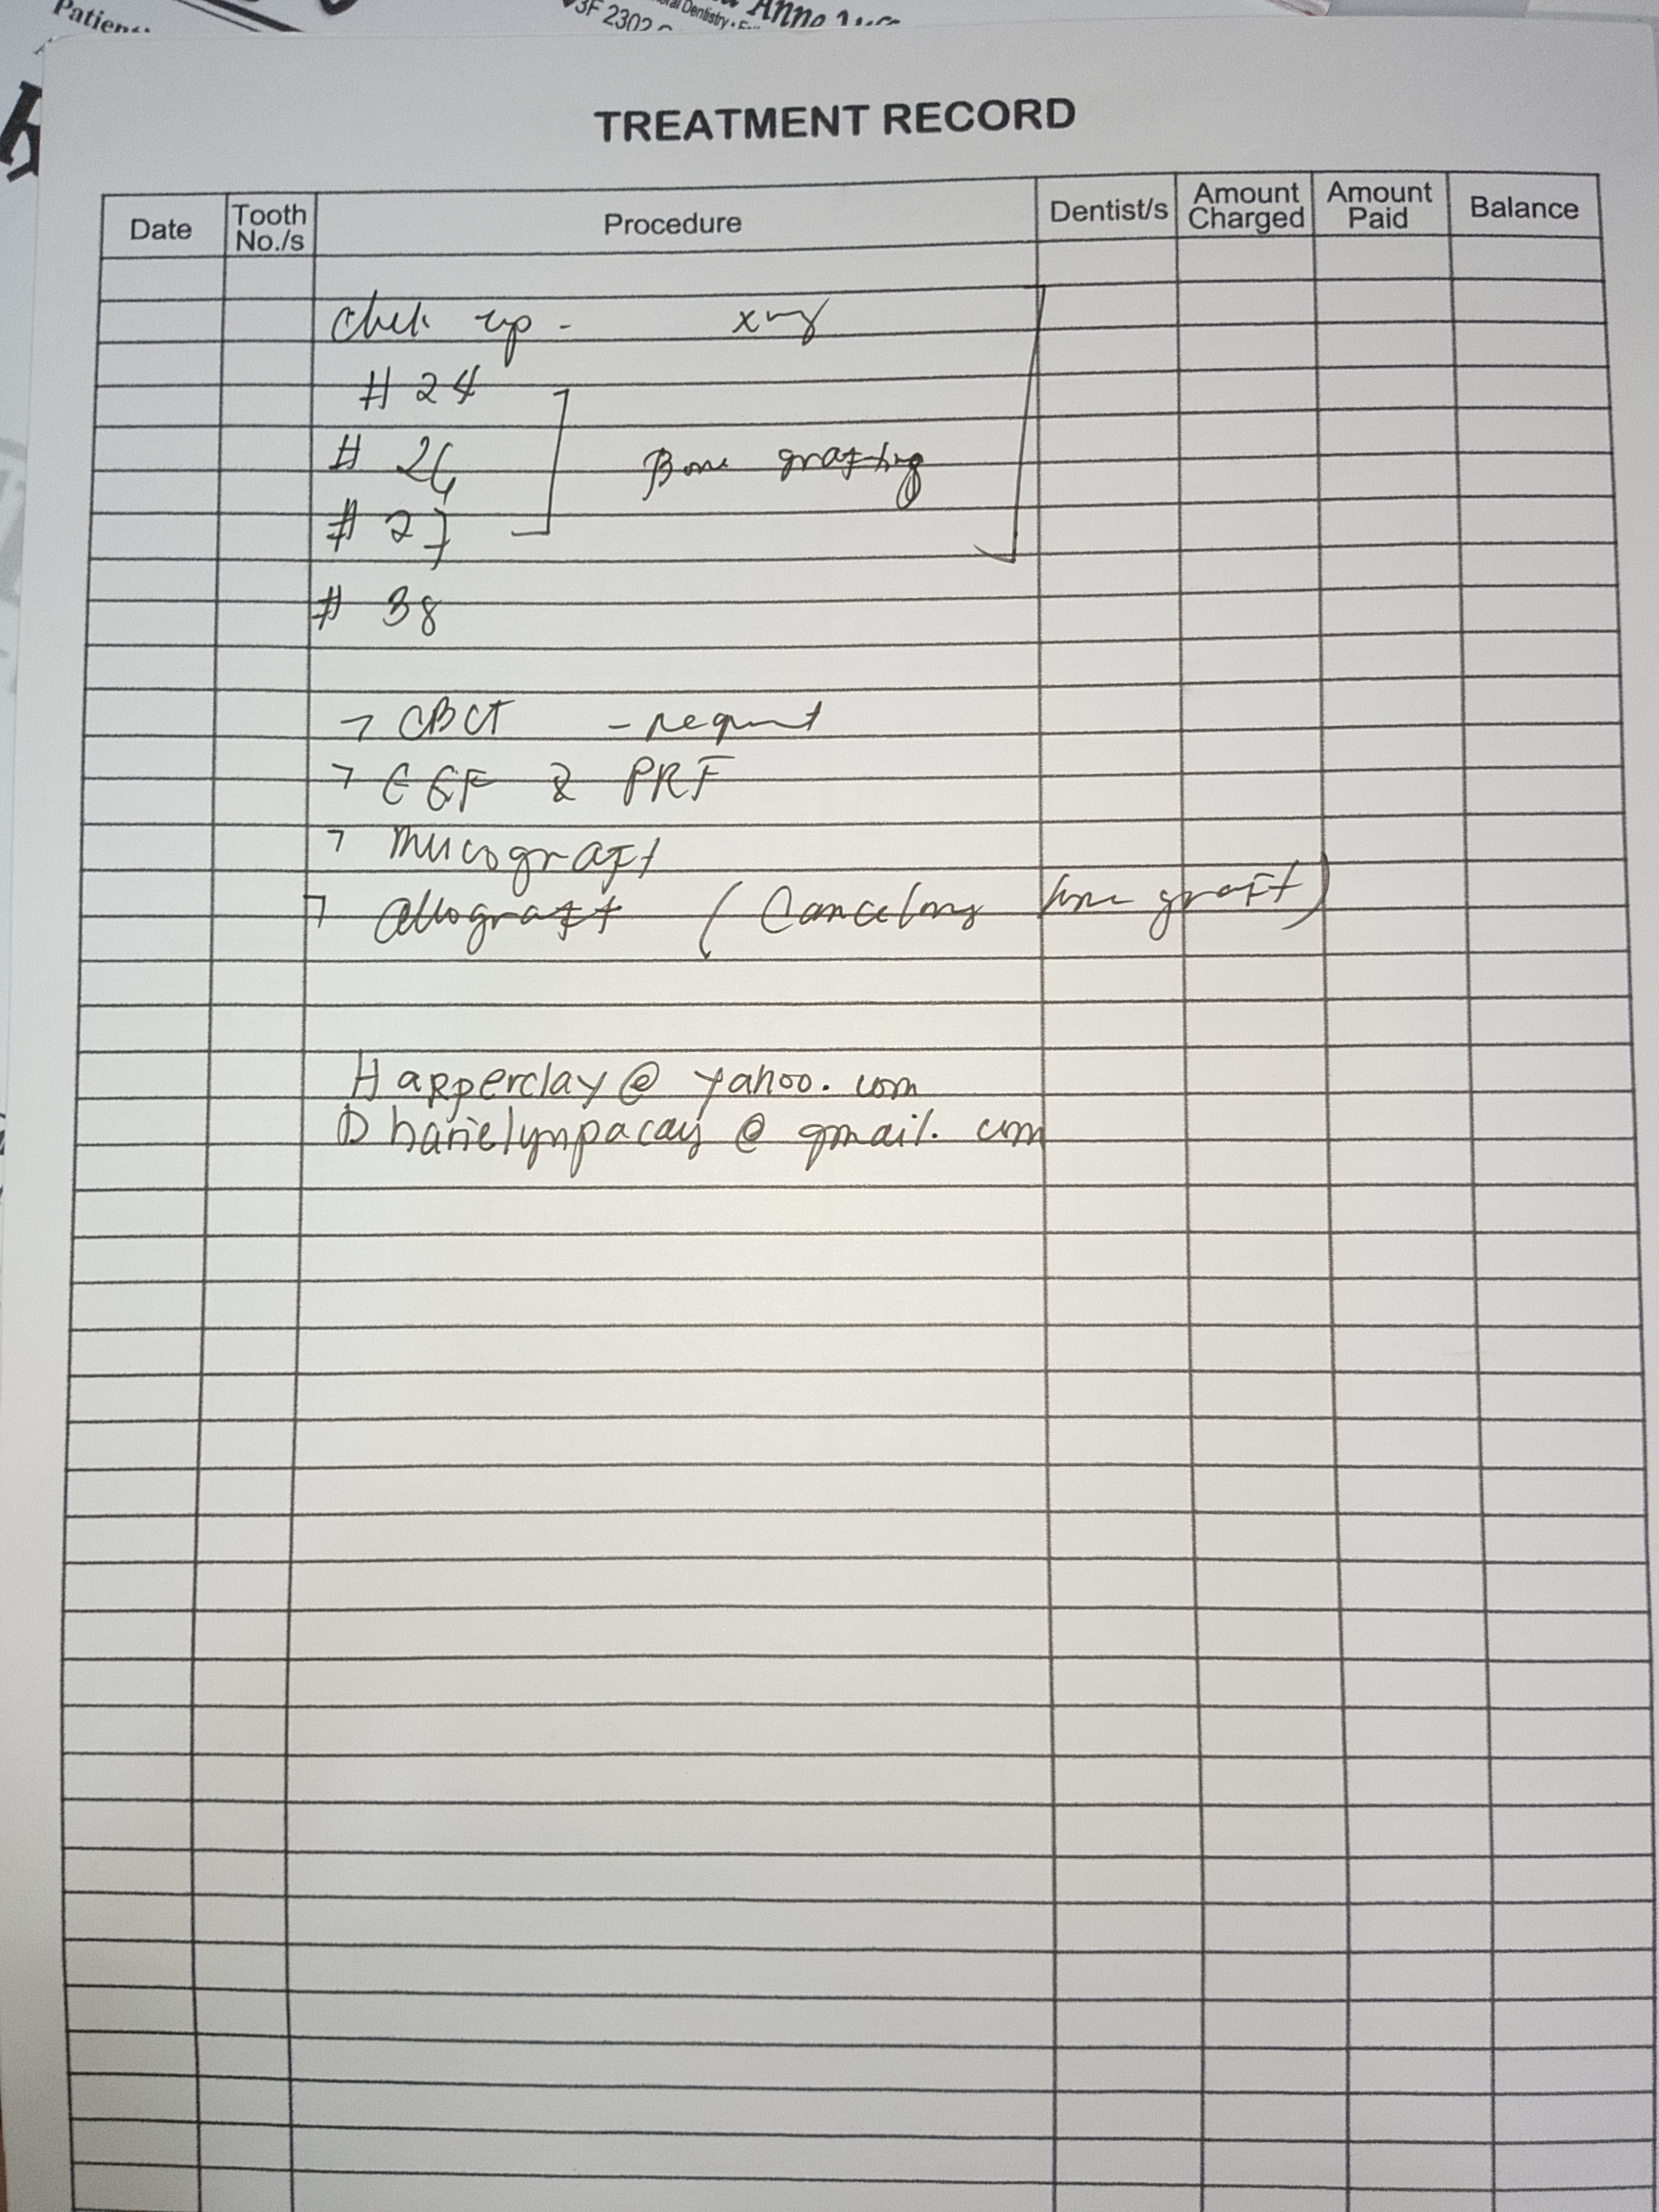 Patient
3F 2302
Dentistry
Anne
TREATMENT RECORD
Date Tooth No./s Procedure Dentist/s Amount Charged Amount Paid Balance
Chek up - xray
# 24
# 26 Bone grafting
# 27
# 38
CBCT - request
EGF & PRF
Mucograft
Allograft (Cancelous bone graft)
Happerclay@yahoo.com
Dharielynpacay@gmail.com